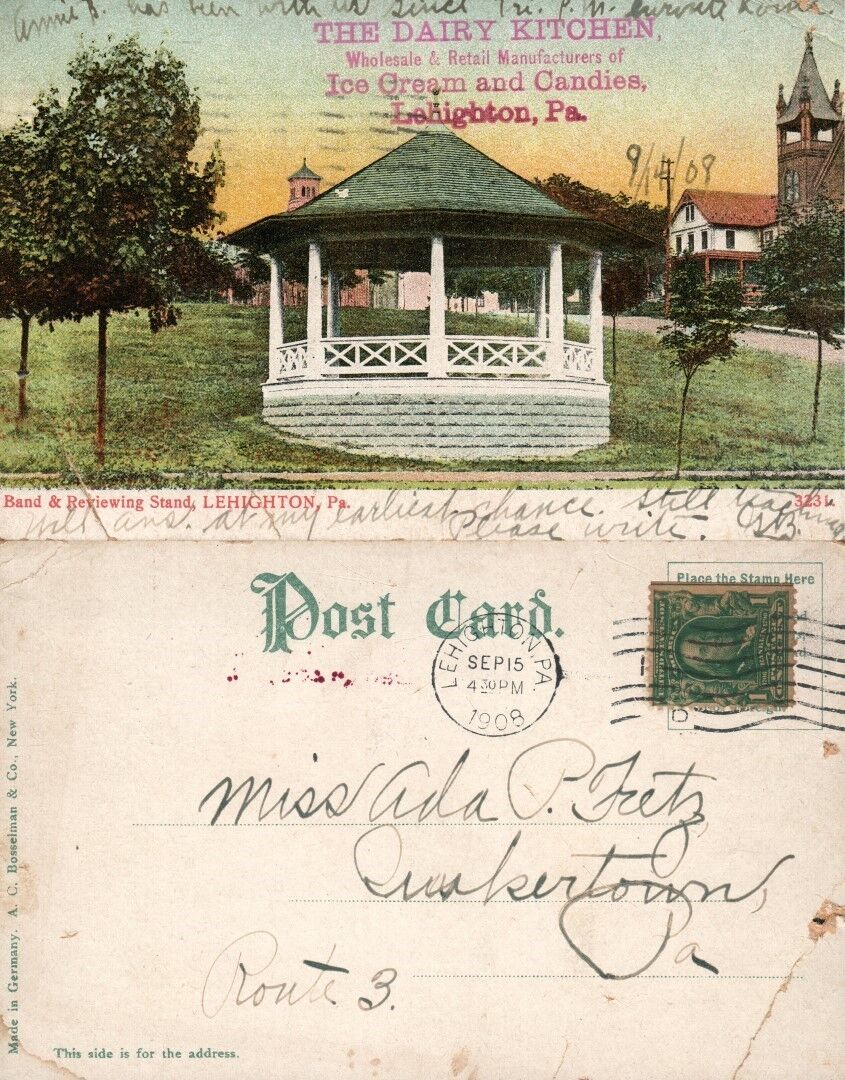 Annie B. has been with us since Fri. P.M. enroute home.
THE DAIRY KITCHEN,
Wholesale & Retail Manufacturers of
Ice Cream and Candies,
Lehighton, Pa.
9/14/08
Band & Reviewing Stand, LEHIGHTON, Pa.
3231.
Will ans. at my earliest chance. Still teaching
Please write.
Post Card.
Place the Stamp Here
LEHIGHTON, PA.
SEP 15
4 30 PM
1908
Miss Ada P. Fretz,
Quakertown,
Pa
Route 3.
Made in Germany. A. C. Bosselman & Co., New York.
This side is for the address.